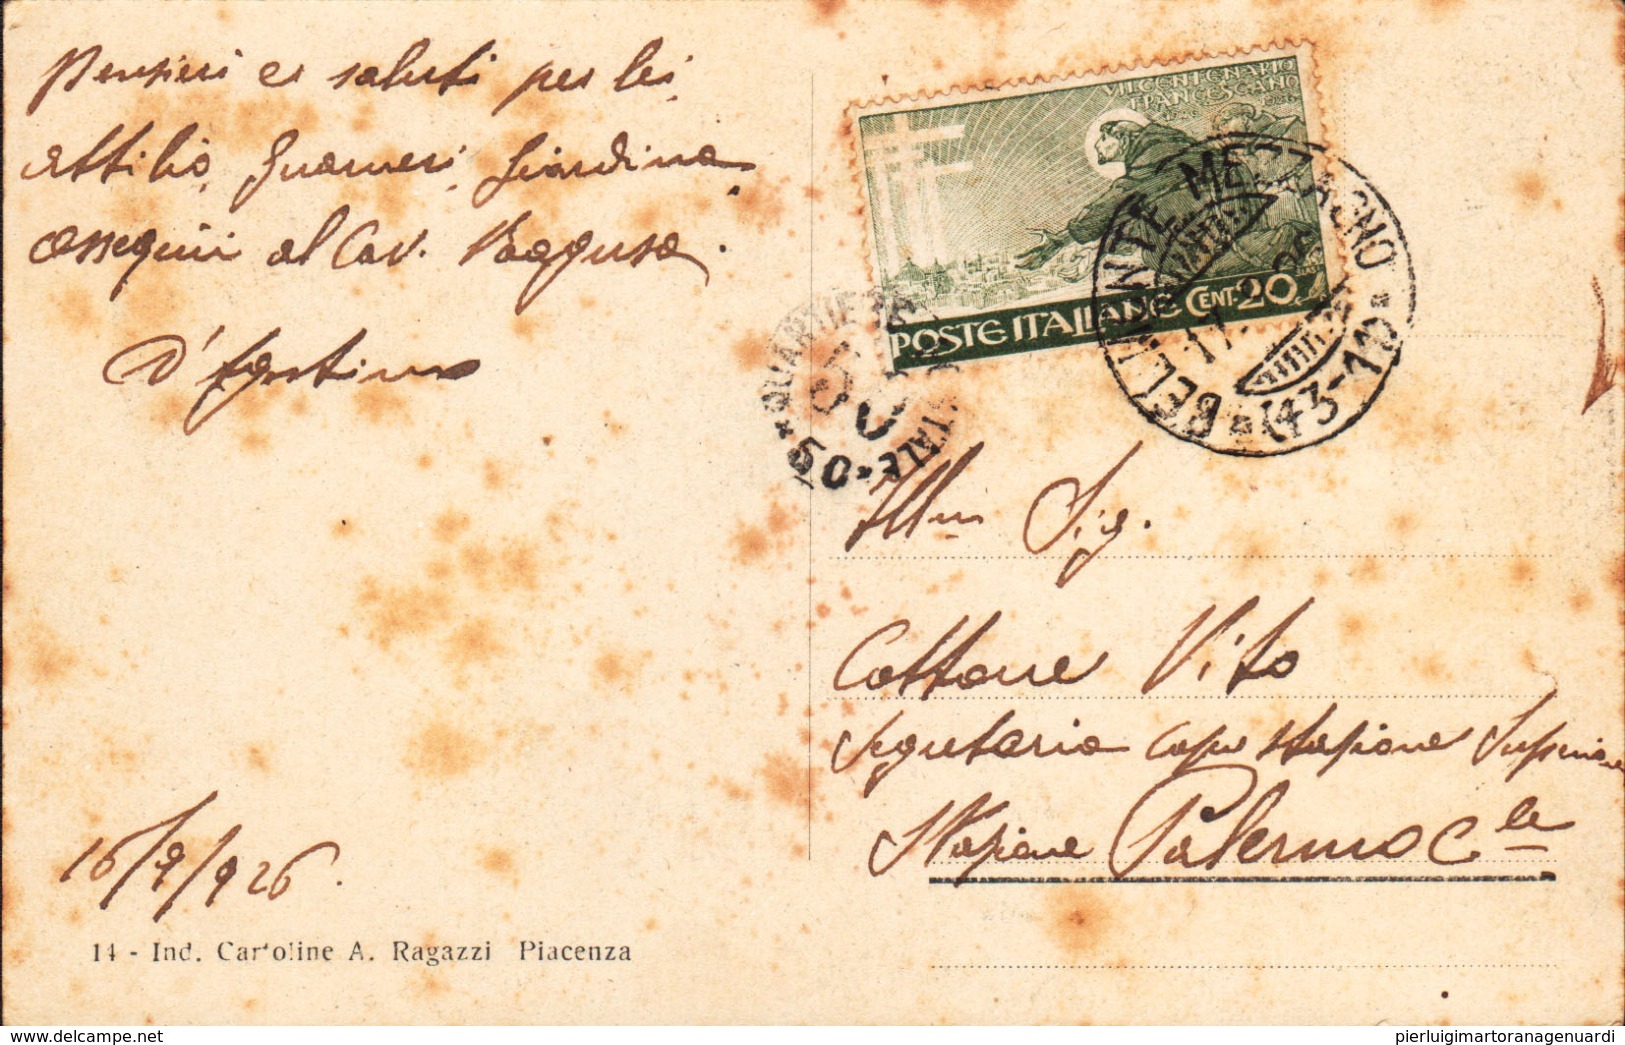 Pensieri e saluti per lei,
Attilio, Guarneri, Giardina
ossequi al Cav. Ragusa.
D'Agostino
16/9/926.
14 - Ind. Cartoline A. Ragazzi Piacenza
VII CENTENARIO
FRANCESCANO
1226 1926
POSTE ITALIANE CENT. 20
BELMONTE MEZZAGNO
(43-110)
50
Ill.mo Sig.
Cottone Vito
Segretario Capo Stazione Superiore
Stazione Palermo C.le
pierluigimartoranagenuardi